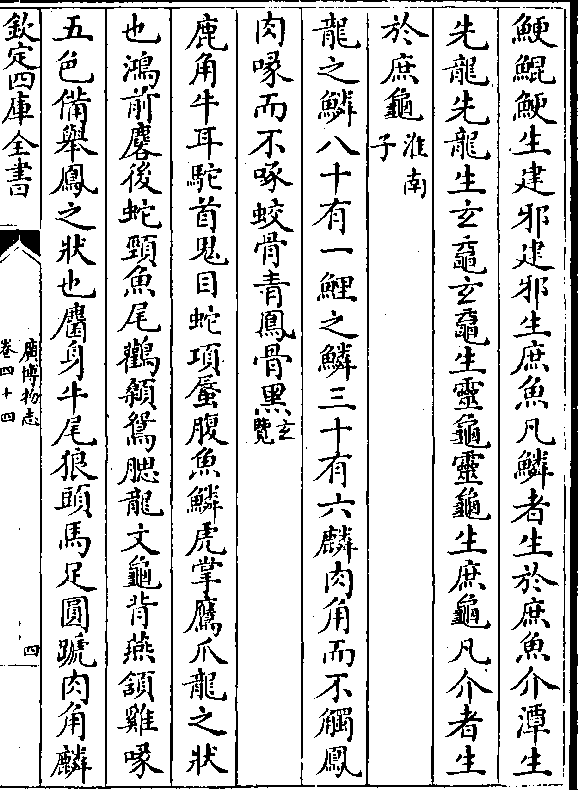 鯁鯤鯁生建邪建邪生庶魚凡鱗者生於庶魚介潭生
先龍先龍生玄黿玄黿生靈龜靈龜生庶龜凡介者生
於庶龜淮南子
龍之鱗八十有一鯉之鱗三十有六麟肉角而不觸鳳
肉喙而不啄蛟骨青鳳骨黑玄覽
鹿角牛耳駝首鬼目蛇項蜃腹魚鱗虎掌鷹爪龍之狀
也鴻前麐後蛇頸魚尾鸛顙鴛腮龍文龜背燕頷雞喙
五色備舉鳳之狀也麕身牛尾狼頭馬足圓蹏肉角麟
欽定四庫全書
廣博物志
卷四十四
四